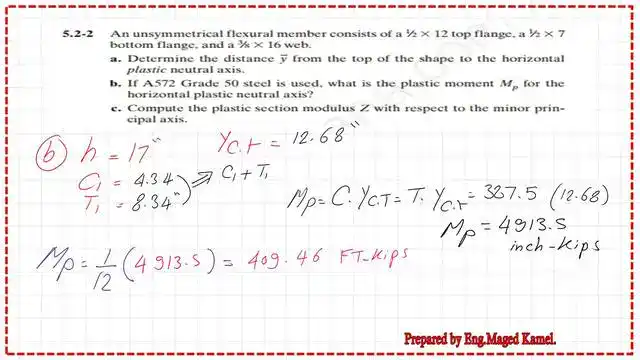 5.2-2 An unsymmetrical flexural member consists of a ½ × 12 top flange, a ½ × 7
bottom flange, and a ⅜ × 16 web.
a. Determine the distance y̅ from the top of the shape to the horizontal
plastic neutral axis.
b. If A572 Grade 50 steel is used, what is the plastic moment Mp for the
horizontal plastic neutral axis?
c. Compute the plastic section modulus Z with respect to the minor prin-
cipal axis.
(b) h = 17" YC.T = 12.68"
C1 = 4.34 ⇒ C1 + T1
T1 = 8.34"
Mp = C. YC.T = T. YC.T = 387.5 (12.68)
Mp = 4913.5
inch-kips
Mp = 1/12 (4913.5) = 409.46 FT-kips
Prepared by Eng.Maged Kamel.